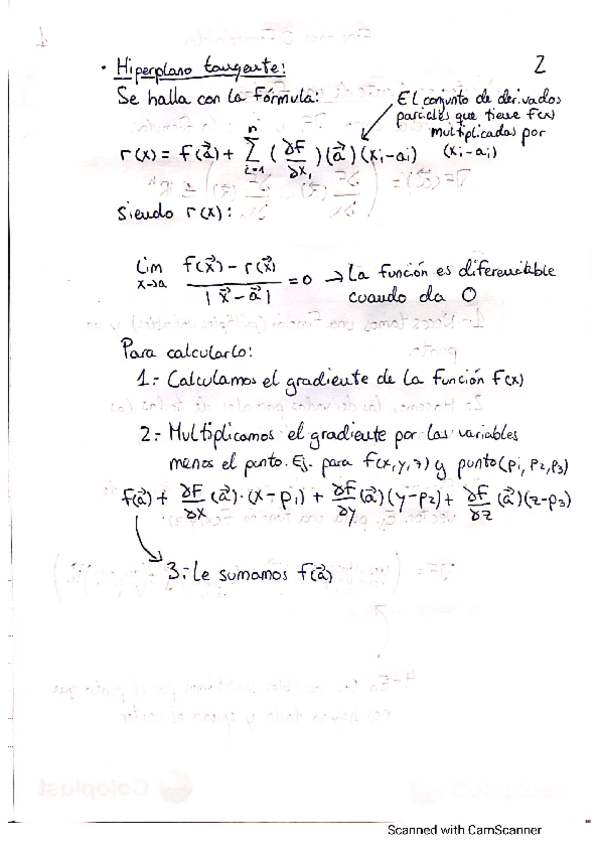 2
· Hiperplano tangente:
Se halla con la fórmula:
El conjunto de derivadas
parciales que tiene f(x)
multiplicadas por
(xi-ai)
r(x) = f(a⃗) + Σ_{i=1}^{n} (∂F/∂x₁)(a⃗)(xi-ai)
Siendo r(x):
Lim_{x→a} (f(x⃗) - r(x⃗))/|x⃗ - a⃗| = 0 → La función es diferenciable
cuando da 0
Para calcularlo:
1.- Calculamos el gradiente de la función f(x)
2.- Multiplicamos el gradiente por las variables
menos el punto. Ej. para f(x,y,z) y punto(p1, p2, p3)
f(a⃗) + ∂F/∂x (a⃗)·(x-p1) + ∂F/∂y (a⃗)(y-p2) + ∂F/∂z (a⃗)(z-p3)
3.- Le sumamos f(a⃗)
Coloplast
Scanned with CamScanner